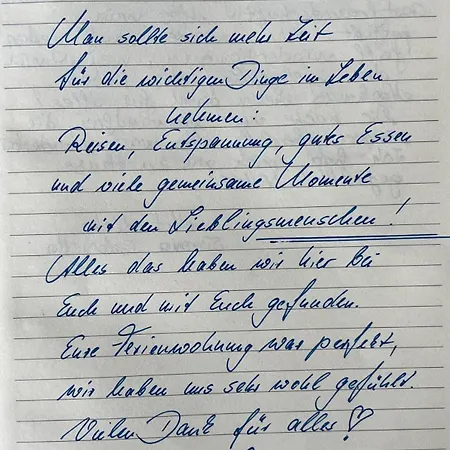 Man sollte sich mehr Zeit
für die wichtigen Dinge im Leben
nehmen:
Reisen, Entspannung, gutes Essen
und viele gemeinsame Momente
mit den Lieblingsmenschen!
Alles das haben wir hier bei
Euch und mit Euch gefunden.
Eure Ferienwohnung war perfekt,
wir haben uns sehr wohl gefühlt.
Vielen Dank für alles!